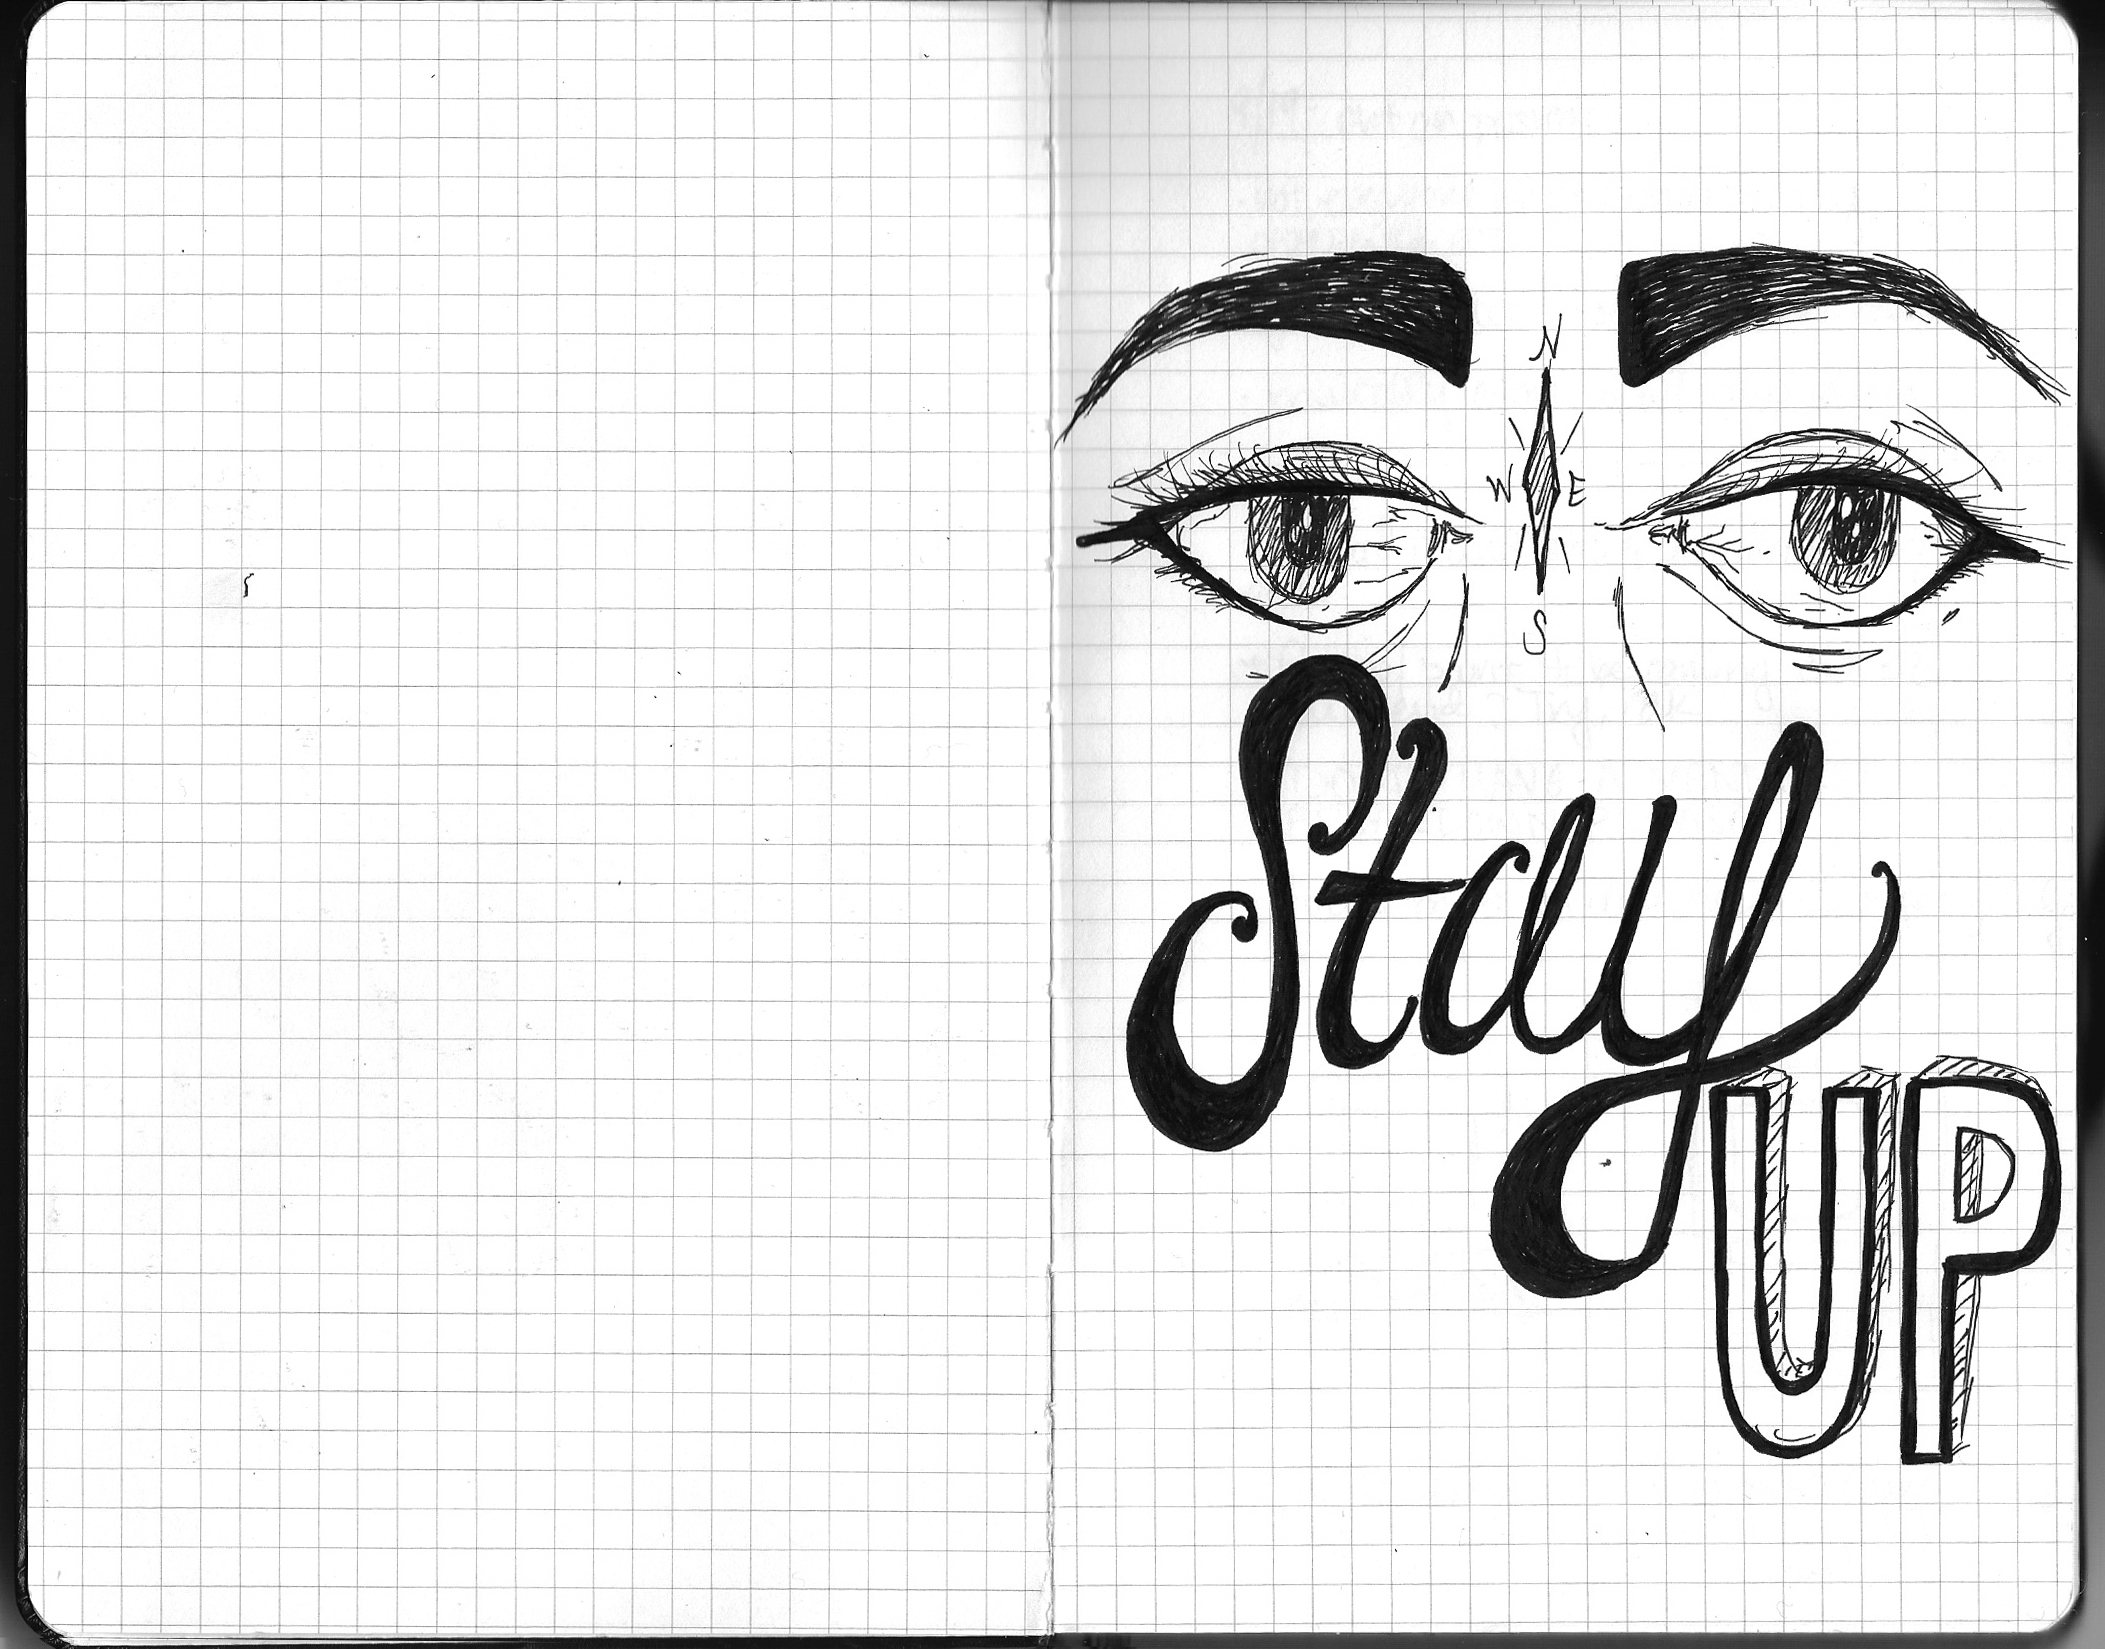 N
W E
S
Stay
UP